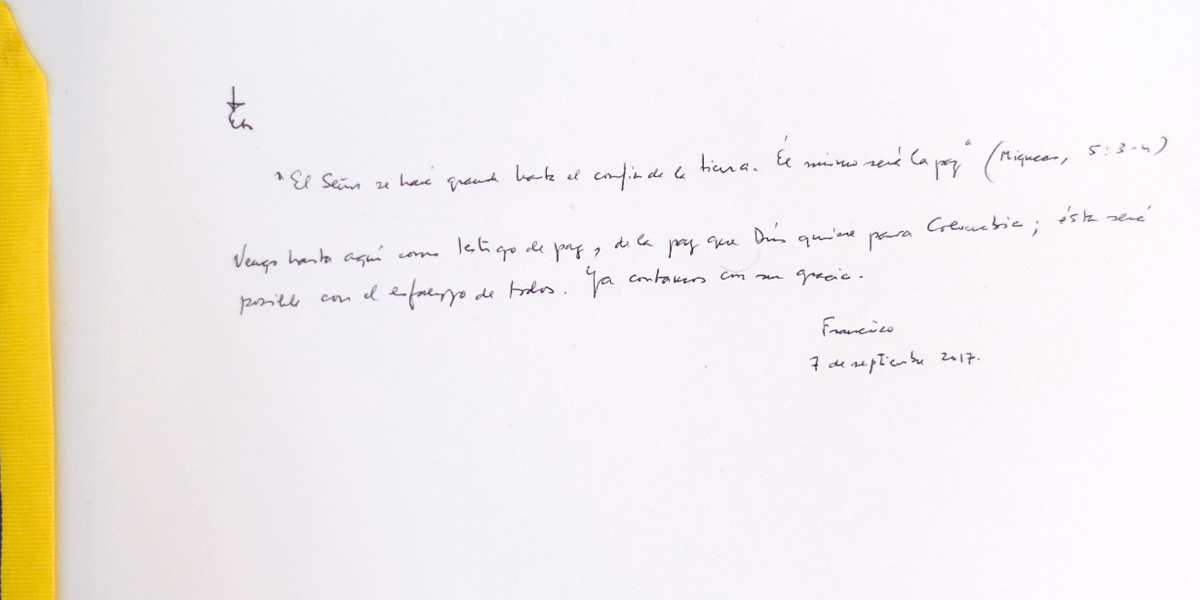 "El Señor se hará grande hasta el confín de la tierra. Él mismo será la paz" (Miqueas, 5:3-4)
Vengo hasta aquí como testigo de paz, de la paz que Dios quiere para Colombia; ésta será
posible con el esfuerzo de todos. Ya contamos con su gracia.
Francisco
7 de septiembre 2017.